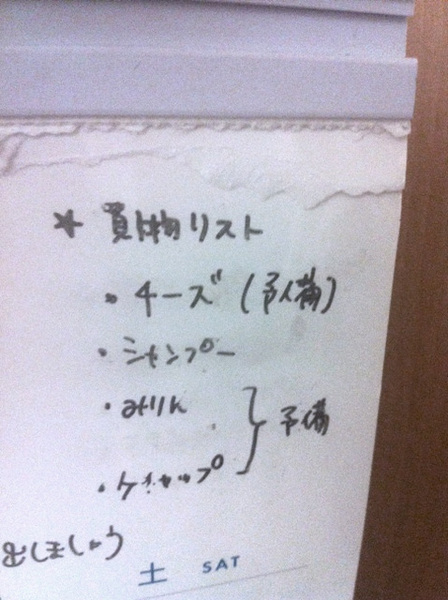 * 買物リスト
・チーズ (予備)
・シャンプー
・みりん
予備
・ケチャップ
出しましょう
土 SAT